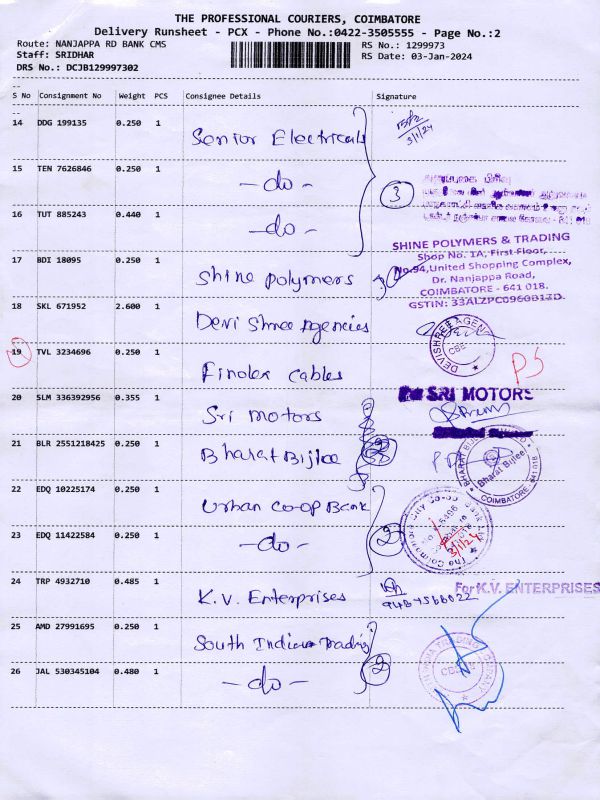 THE PROFESSIONAL COURIERS, COIMBATORE
Delivery Runsheet - PCX - Phone No.:0422-3505555 - Page No.:2
Route: NANJAPPA RD BANK CMS RS No.: 1299973
Staff: SRIDHAR RS Date: 03-Jan-2024
DRS No.: DCJB129997302
S No Consignment No Weight PCS Consignee Details Signature
14 DDG 199135 0.250 1 Senior Electricals
3/1/24
15 TEN 7626846 0.250 1 -do-
3
16 TUT 885243 0.440 1 -do-
SHINE POLYMERS & TRADING
Shop No. 1A, First Floor,
No.94,United Shopping Complex,
Dr. Nanjappa Road,
COIMBATORE - 641 018.
GSTIN: 33ALZPC0960B1ZD
17 BDI 18095 0.250 1 Shine polymers
18 SKL 671952 2.600 1 Devi Shree Agencies
DEVISHREE AGEN
CBE
19 TVL 3234696 0.250 1 Finolex Cables
PS
20 SLM 336392956 0.355 1 Sri Motors
For SRI MOTORS
21 BLR 2551218425 0.250 1 Bharat Bijlee
Bharat Bijlee
COIMBATORE - 641 018
22 EDQ 10225174 0.250 1 Urban Co-op Bank
23 EDQ 11422584 0.250 1 -do-
2
3/1/24
24 TRP 4932710 0.485 1 K.V. Enterprises
For K.V. ENTERPRISES
25 AMD 27991695 0.250 1 South Indian Trading
26 JAL 530345104 0.480 1 -do-
2
CBE